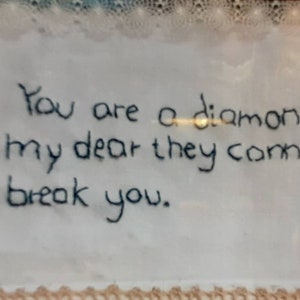 You are a diamon
my dear they cann
break you.